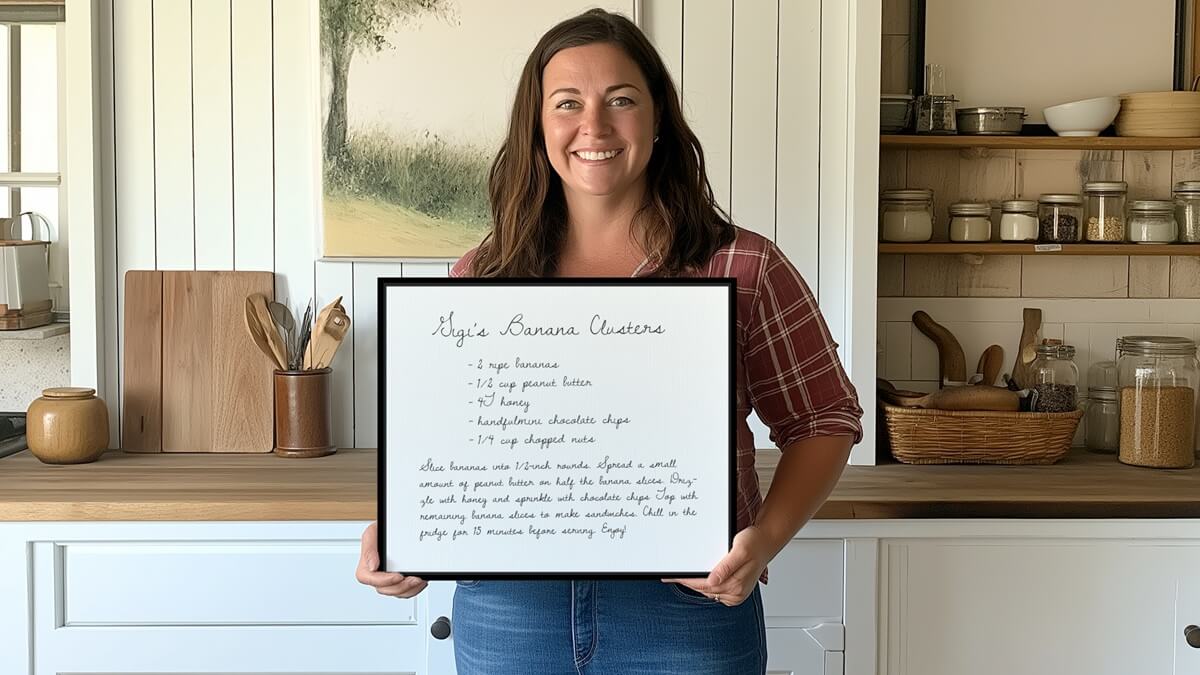 Gigi's Banana Clusters
- 2 ripe bananas
- 1/2 cup peanut butter
- 4T honey
- handfulmini chocolate chips
- 1/4 cup chopped nuts
Slice bananas into 1/2-inch rounds. Spread a small
amount of peanut butter on half the banana slices. Driz-
zle with honey and sprinkle with chocolate chips Top with
remaining banana slices to make sandwiches. Chill in the
fridge for 15 minutes before serving. Enjoy!